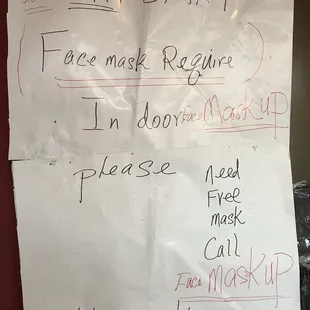 (Face mask Require)
In door Face Mask up
please
Need
Free
mask
Call
Face Mask up